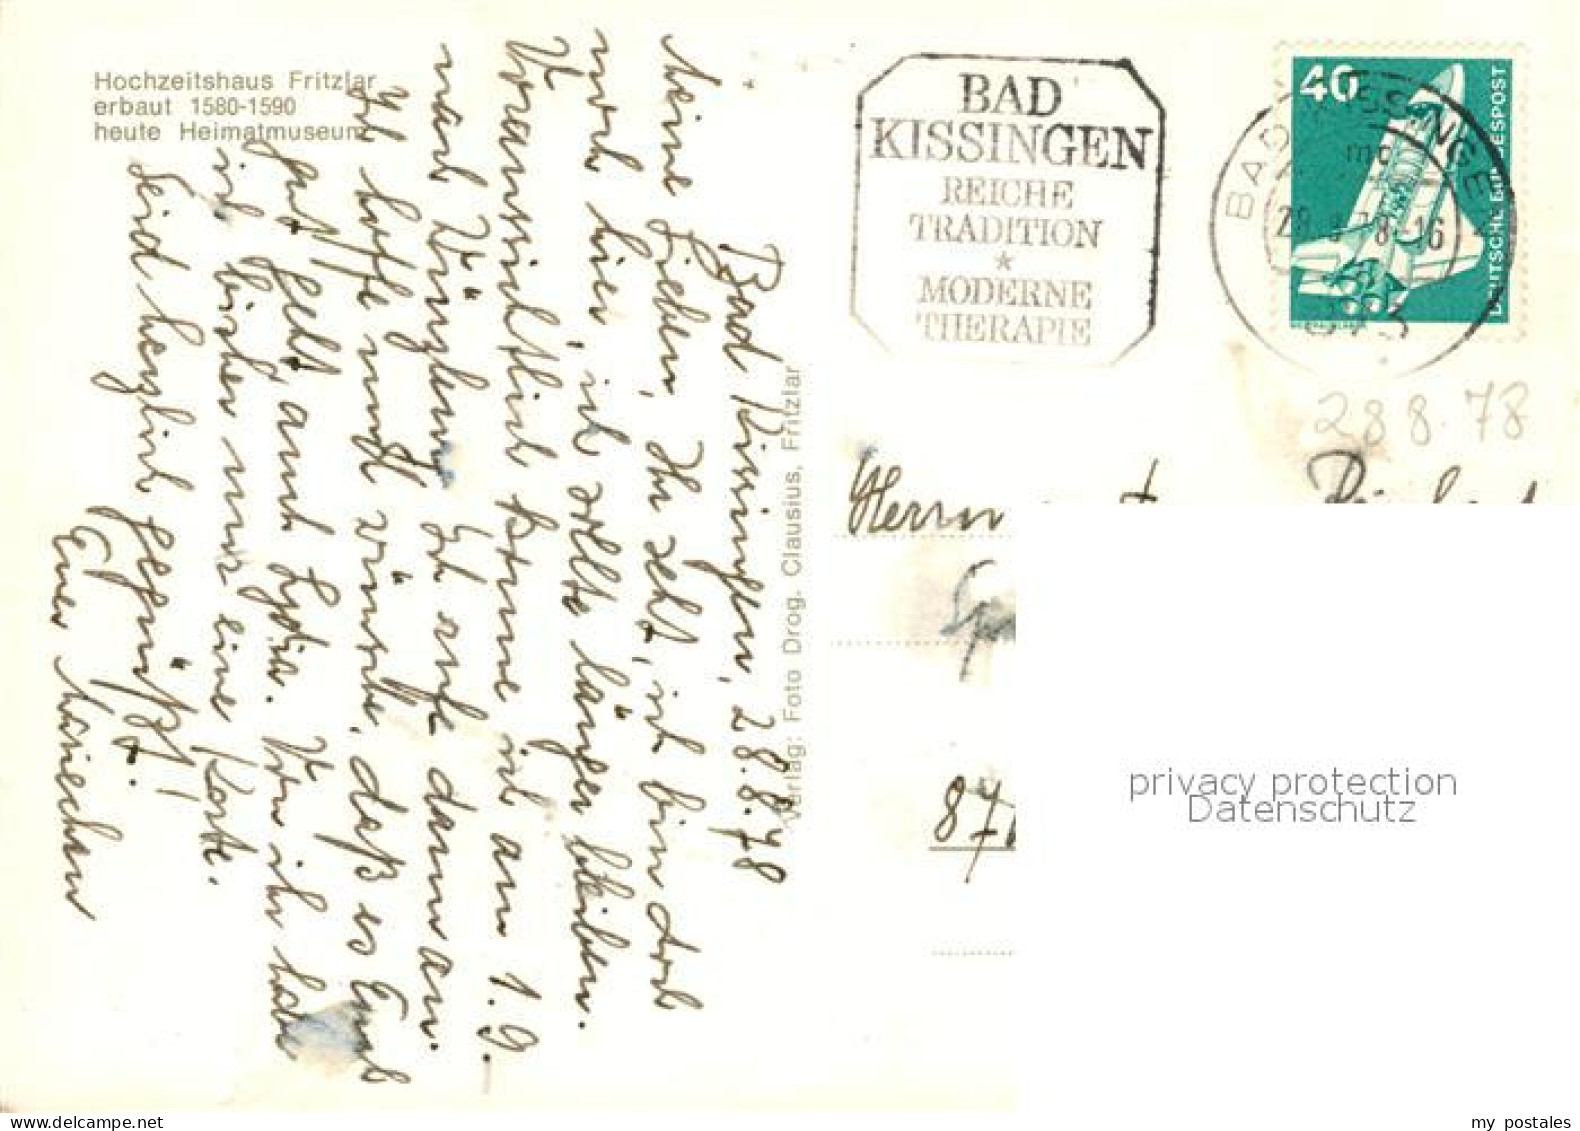 Hochzeitshaus Fritzlar
erbaut 1580-1590
heute Heimatmuseum
Bad Kissingen, 28.8.78
Meine Lieben, Ihr seht, ich bin doch
noch hier, ich sollte länger bleiben.
Voraussichtlich komme ich am 1.9.
nach Würzburg. Ich rufe dann an.
Ich hoffe und wünsche, daß es Euch
gut geht, auch Lydia. Von ihr habe
ich bisher nur eine Karte.
Seid herzlich gegrüßt!
Eure Mariechen
Verlag: Foto Drog. Clausius, Fritzlar
BAD
KISSINGEN
REICHE
TRADITION
*
MODERNE
THERAPIE
40
DEUTSCHE BUNDESPOST
BAD KISSINGEN
28.8.78-16
8730
28 8.78
Herrn
87
privacy protection
Datenschutz
my postales